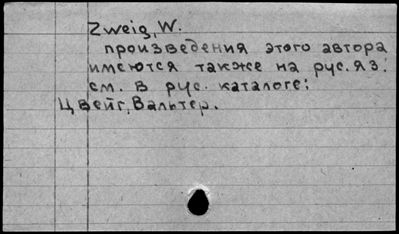 Zweig, W.
произведения этого автора
имеются также на рус. яз.
см. в рус. каталоге:
Цвейг, Вальтер.